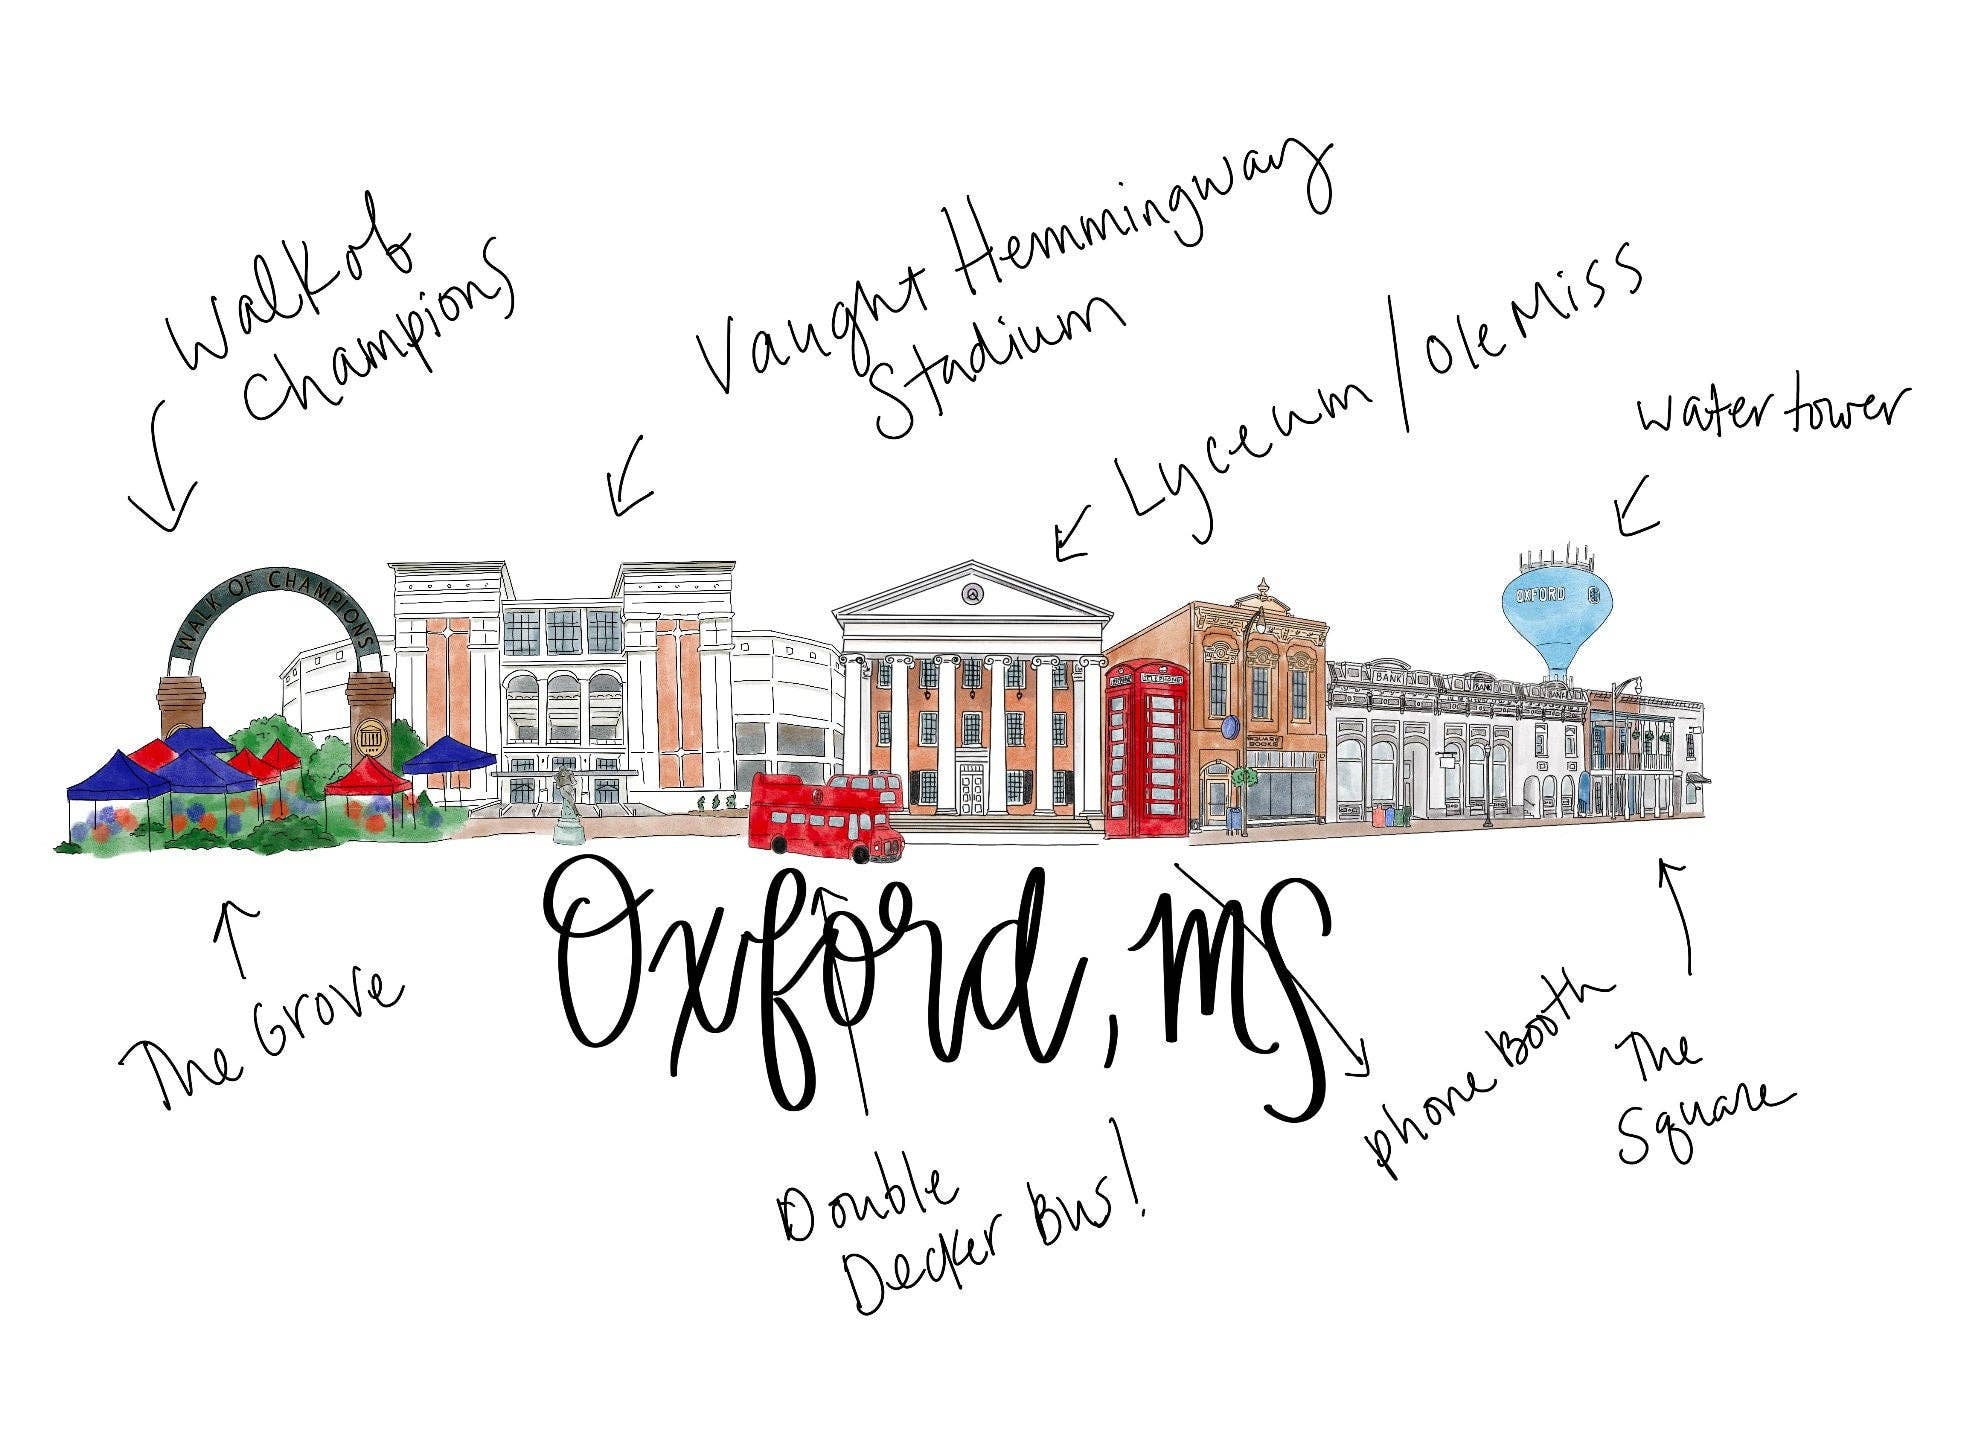 Walk of
Champions
Vaught Hemmingway
Stadium
Lyceum / Ole Miss
water tower
WALK OF CHAMPIONS
OXFORD
TELEPHONE
BANK
BANK
BANK
SQUARE
BOOKS
Oxford, MS
The Grove
Double
Decker Bus!
phone Booth
The
Square